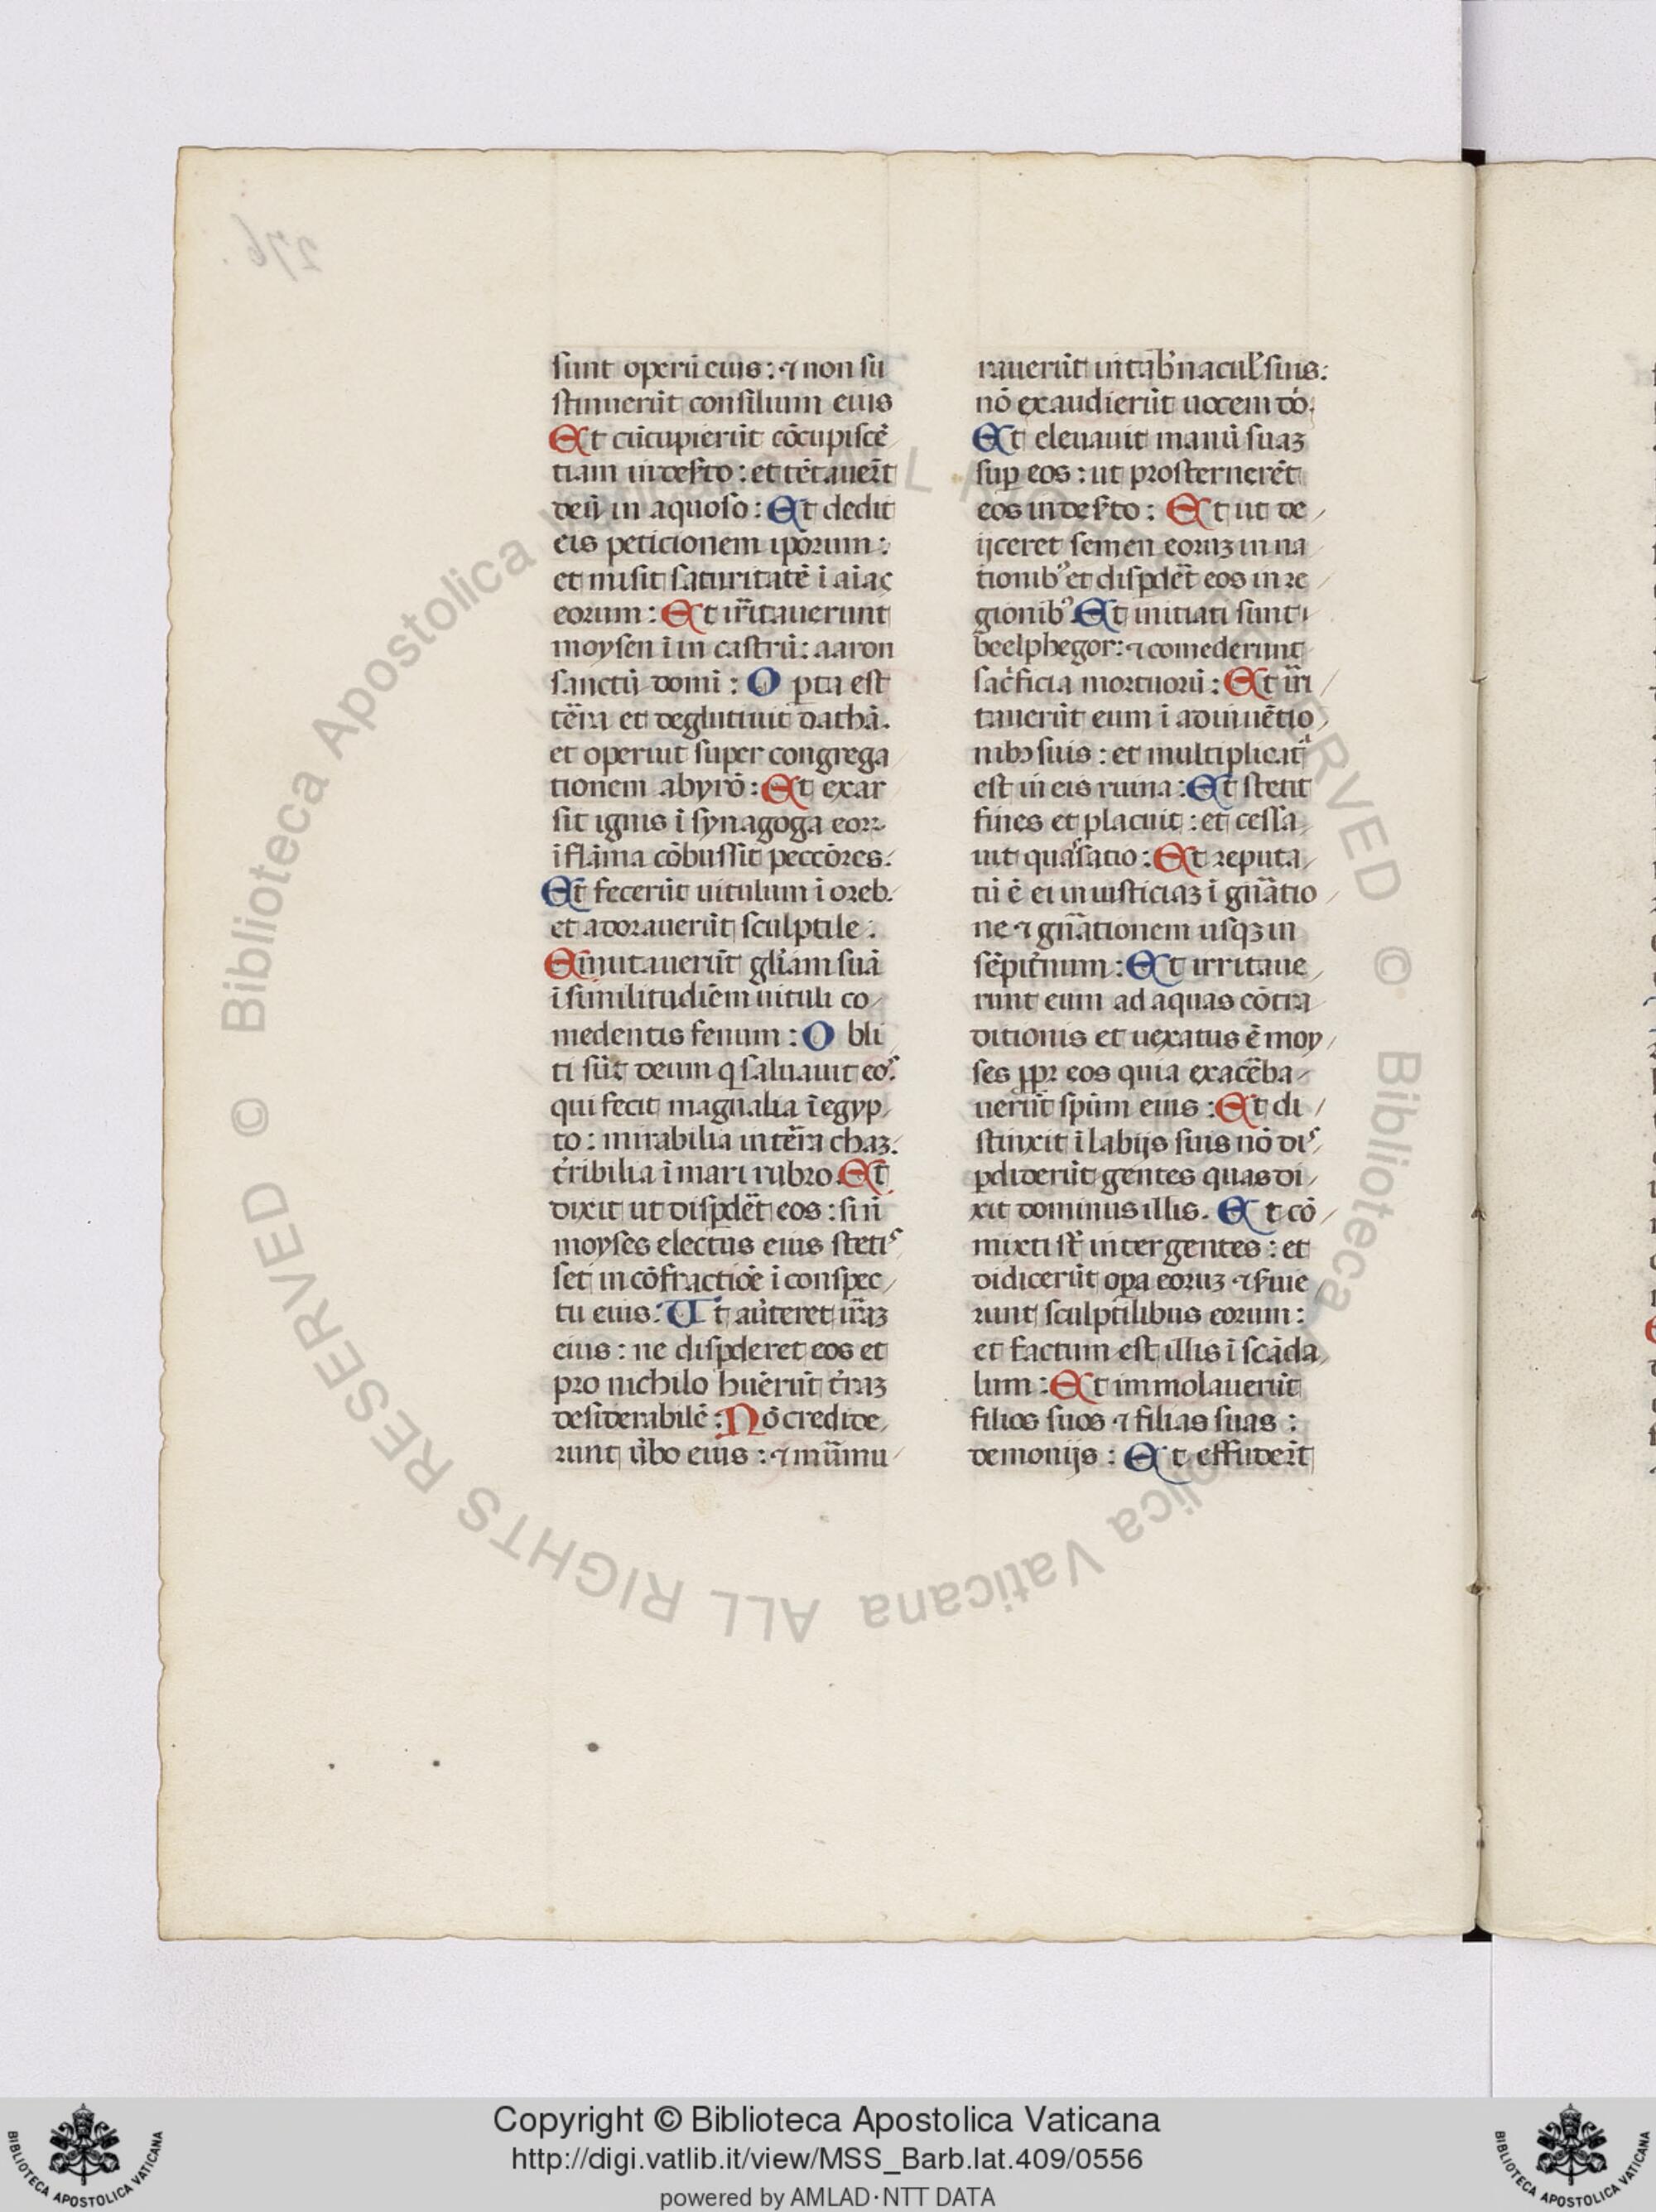 sunt operū eius : ⁊ non su
stinuerūt consilium eius
Et cūcupierūt cōcupiscē
tiam in deserto : et tētauer̄t
deū in aquoso : Et dedit
eis peticionem ip̄orum :
et misit saturitatē ī aīas
eorum : Et ir̄itauerunt
moysen ī in castrū : aaron
sanctū domī : O pta est
tēra et deglutiuit dathā.
et operuit super congrega
tionem abyrō : Et exar
sit ignis ī synagoga eoꝝ
ī flāma cōbussit peccōres.
Et fecerūt uitulum ī oreb.
et adorauerūt sculptile .
Em̄utauerūt glīam suā
ī similitudiēm uituli co
medentis fenum : O bli
ti sūt deum q saluauit eos.
qui fecit magnalia ī egyp
to : mirabilia in tēra chaꝫ.
t̄ribilia ī mari rubro. Et
dixit ut disꝑdēt eos : si n̄
moyses electus eius stetis
set in cōfractiōe ī conspec
tu eius : Ut aūteret ir̄aꝫ
eius : ne disꝑderet eos et
pro nichilo huērūt t̄raꝫ
desiderabilē : Nō credide
runt ūbo eius : ⁊ mūmu
rauerūt in tab̄nacul̕ suis :
nō exaudierūt uocem dō.
Et eleuauit manū suaꝫ
suꝑ eos : ut prosternerēt
eos in des̄to : Et ut de
ijceret semen eoruꝫ in na
tionibꝰ et disꝑdēt eos in re
gionibꝰ Et initiati sunt
beelphegor : ⁊ comederunt
sac̄ficia mortuorū : Et ir̄i
tauerūt eum ī adinuētio
nibꝫ suis : et multiplicatᷣ
est in eis ruina : Et stetit
finees et placuit : et cessa
uit quassatio : Et reputa
tū ē ei in iusticiaꝫ ī gn̄atio
ne ⁊ gn̄ationem usqꝫ in
sēpit̄num : Et irritaue
runt eum ad aquas cōtra
ditionis et uexatus ē moy
ses ꝓpꝛ eos quia exacēba
uerūt spūm eius : Et di
stinxit ī labijs suis nō dis
ꝑdiderūt gentes quas di
xit dominus illis . Et cō
mixti st̄ inter gentes : et
didicerūt oꝑa eoruꝫ ⁊ s̄uie
runt sculptilibus eorum :
et factum est illis ī scāda
lum : Et immolauerūt
filios suos ⁊ filias suas :
demonijs : Et effuder̄t
Copyright © Biblioteca Apostolica Vaticana
http://digi.vatlib.it/view/MSS_Barb.lat.409/0556
powered by AMLAD·NTT DATA
BIBLIOTECA APOSTOLICA VATICANA
BIBLIOTECA APOSTOLICA VATICANA
© Biblioteca Apostolica Vaticana ALL RIGHTS RESERVED © Biblioteca Apostolica Vaticana ALL RIGHTS RESERVED